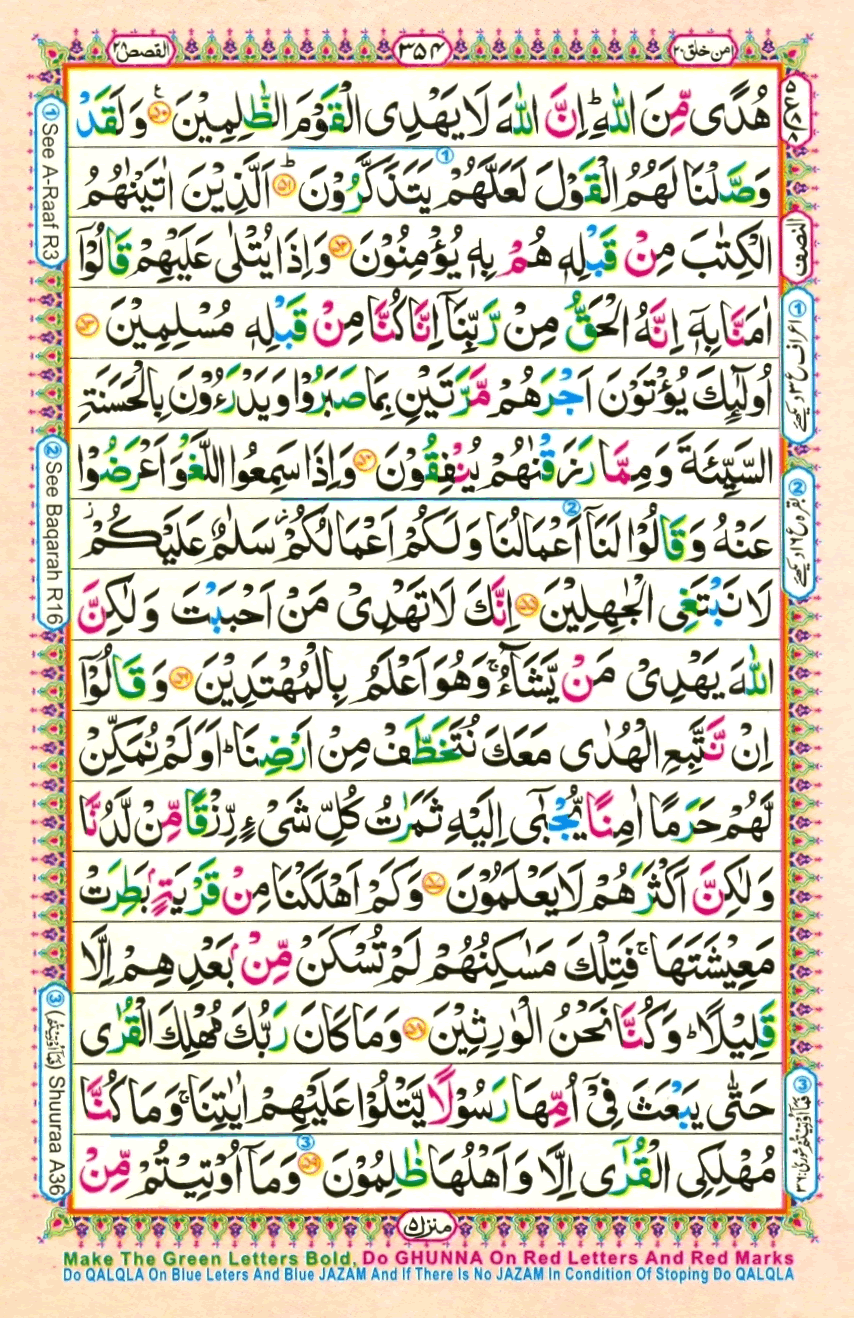 امن خلق ۲۰
۳۵۴
القصص ۲۸
هُدًى مِّنَ اللّٰهِ ؕ اِنَّ اللّٰهَ لَا يَهْدِى الْقَوْمَ الظّٰلِمِيْنَ ۵۰ وَلَقَدْ
وَصَّلْنَا لَهُمُ الْقَوْلَ لَعَلَّهُمْ يَتَذَكَّرُوْنَ ؕ ۵۱ اَلَّذِيْنَ اٰتَيْنٰهُمُ
الْكِتٰبَ مِنْ قَبْلِهٖ هُمْ بِهٖ يُؤْمِنُوْنَ ۵۲ وَاِذَا يُتْلٰى عَلَيْهِمْ قَالُوْٓا
اٰمَنَّا بِهٖٓ اِنَّهُ الْحَقُّ مِنْ رَّبِّنَآ اِنَّا كُنَّا مِنْ قَبْلِهٖ مُسْلِمِيْنَ ۵۳
اُولٰٓئِكَ يُؤْتَوْنَ اَجْرَهُمْ مَّرَّتَيْنِ بِمَا صَبَرُوْا وَيَدْرَءُوْنَ بِالْحَسَنَةِ
السَّيِّئَةَ وَمِمَّا رَزَقْنٰهُمْ يُنْفِقُوْنَ ۵۴ وَاِذَا سَمِعُوا اللَّغْوَ اَعْرَضُوْا
عَنْهُ وَقَالُوْا لَنَآ اَعْمَالُنَا وَلَكُمْ اَعْمَالُكُمْ ز سَلٰمٌ عَلَيْكُمْ ز
لَا نَبْتَغِى الْجٰهِلِيْنَ ۵۵ اِنَّكَ لَا تَهْدِىْ مَنْ اَحْبَبْتَ وَلٰكِنَّ
اللّٰهَ يَهْدِىْ مَنْ يَّشَآءُ ۚ وَهُوَ اَعْلَمُ بِالْمُهْتَدِيْنَ ۵۶ وَقَالُوْٓا
اِنْ نَّتَّبِعِ الْهُدٰى مَعَكَ نُتَخَطَّفْ مِنْ اَرْضِنَا ؕ اَوَلَمْ نُمَكِّنْ
لَّهُمْ حَرَمًا اٰمِنًا يُّجْبٰٓى اِلَيْهِ ثَمَرٰتُ كُلِّ شَىْءٍ رِّزْقًا مِّنْ لَّدُنَّا
وَلٰكِنَّ اَكْثَرَهُمْ لَا يَعْلَمُوْنَ ۵۷ وَكَمْ اَهْلَكْنَا مِنْ قَرْيَةٍۭ بَطِرَتْ
مَعِيْشَتَهَا ۚ فَتِلْكَ مَسٰكِنُهُمْ لَمْ تُسْكَنْ مِّنْۢ بَعْدِهِمْ اِلَّا
قَلِيْلًا ؕ وَكُنَّا نَحْنُ الْوٰرِثِيْنَ ۵۸ وَمَا كَانَ رَبُّكَ مُهْلِكَ الْقُرٰى
حَتّٰى يَبْعَثَ فِىْٓ اُمِّهَا رَسُوْلًا يَّتْلُوْا عَلَيْهِمْ اٰيٰتِنَا ۚ وَمَا كُنَّا
مُهْلِكِى الْقُرٰٓى اِلَّا وَاَهْلُهَا ظٰلِمُوْنَ ۵۹ وَمَآ اُوْتِيْتُمْ مِّنْ
النصف
① اعراف ع ۳ دیکھئے
② بقرہ ع ۱۶ دیکھئے
① See A-Raaf R3
② See Baqarah R16
③ (فَمَآ اُوْتِيْتُمْ) Shuuraa A36
③ فَمَآ اُوْتِيْتُمْ شورٰی: ۳۶
منزل ۵
Make The Green Letters Bold, Do GHUNNA On Red Letters And Red Marks
Do QALQLA On Blue Leters And Blue JAZAM And If There Is No JAZAM In Condition Of Stoping Do QALQLA